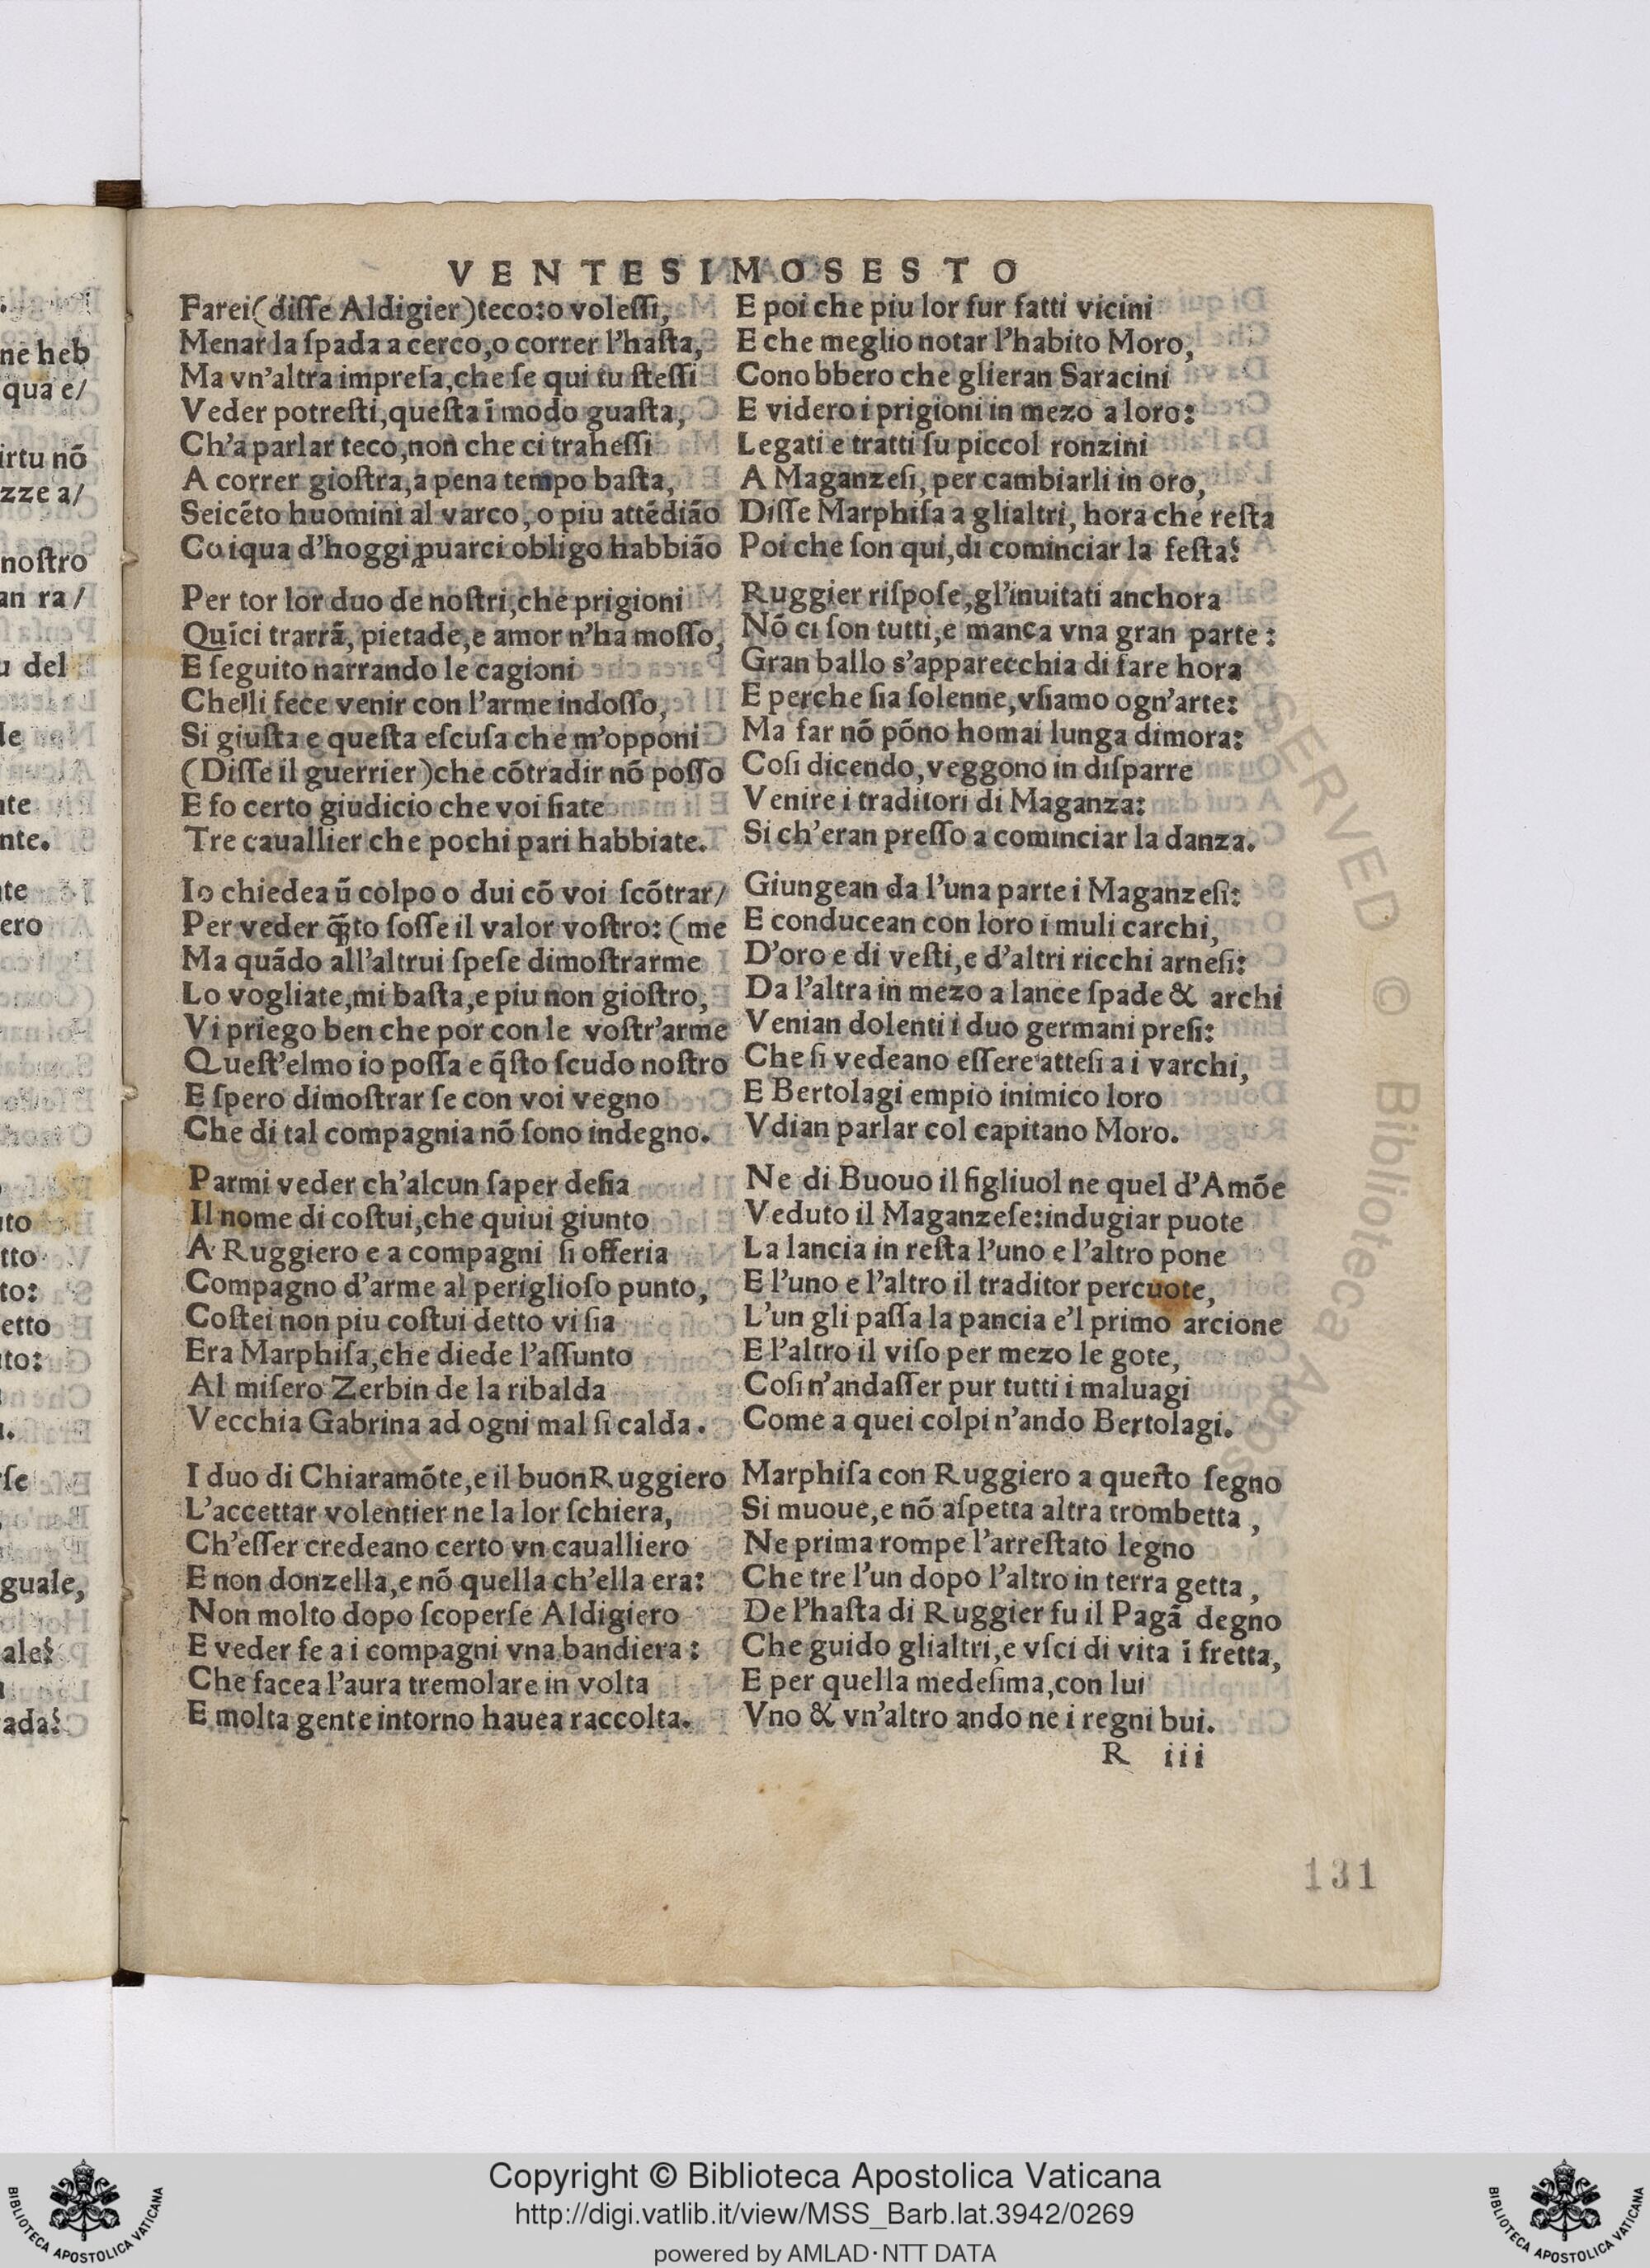 VENTESIMOSESTO
Farei(diſſe Aldigier)teco:o voleſſi,
Menar la ſpada a cerco,o correr l'haſta,
Ma vn'altra impreſa,che ſe qui tu ſteſſi
Veder potreſti,queſta ī modo guaſta,
Ch'a parlar teco,non che ci traheſſi
A correr gioſtra,a pena tempo baſta,
Seicēto huomini al varco,o piu attēdiāo
Co iqua d'hoggi ꝓuarci obligo habbiāo
Per tor lor duo de noſtri,che prigioni
Quīci trarrā, pietade,e amor n'ha moſſo,
E ſeguito narrando le cagioni
Chelli fece venir con l'arme indoſſo,
Si giuſta e queſta eſcuſa che m'opponi
(Diſſe il guerrier)che cōtradir nō poſſo
E fo certo giudicio che voi ſiate
Tre cauallier che pochi pari habbiate.
Io chiedea ū colpo o dui cō voi ſcōtrar/
Per veder q̄to foſſe il valor voſtro: (me
Ma quādo all'altrui ſpeſe dimoſtrarme
Lo vogliate,mi baſta,e piu non gioſtro,
Vi priego ben che por con le voſtr'arme
Queſt'elmo io poſſa e q̄ſto ſcudo noſtro
E ſpero dimoſtrar ſe con voi vegno
Che di tal compagnia nō ſono indegno.
Parmi veder ch'alcun ſaper deſia
Il nome di coſtui,che quiui giunto
A Ruggiero e a compagni ſi offeria
Compagno d'arme al periglioſo punto,
Coſtei non piu coſtui detto vi ſia
Era Marphiſa,che diede l'aſſunto
Al miſero Zerbin de la ribalda
Vecchia Gabrina ad ogni mal ſi calda.
I duo di Chiaramōte,e il buon Ruggiero
L'accettar volentier ne la lor ſchiera,
Ch'eſſer credeano certo vn caualliero
E non donzella,e nō quella ch'ella era:
Non molto dopo ſcoperſe Aldigiero
E veder fe a i compagni vna bandiera:
Che facea l'aura tremolare in volta
E molta gente intorno hauea raccolta.
E poi che piu lor fur fatti vicini
E che meglio notar l'habito Moro,
Conobbero che glieran Saracini
E videro i prigioni in mezo a loro:
Legati e tratti ſu piccol ronzini
A Maganzeſi, per cambiarli in oro,
Diſſe Marphiſa a glialtri, hora che reſta
Poi che ſon qui,di cominciar la feſta?
Ruggier riſpoſe,gl'inuitati anchora
Nō ci ſon tutti,e manca vna gran parte:
Gran ballo s'apparecchia di fare hora
E perche ſia ſolenne,vſiamo ogn'arte:
Ma far nō pōno homai lunga dimora:
Coſi dicendo,veggono in diſparre
Venire i traditori di Maganza:
Si ch'eran preſſo a cominciar la danza.
Giungean da l'una parte i Maganzeſi:
E conducean con loro i muli carchi,
D'oro e di veſti,e d'altri ricchi arneſi:
Da l'altra in mezo a lance ſpade & archi
Venian dolenti i duo germani preſi:
Che ſi vedeano eſſere atteſi a i varchi,
E Bertolagi empio inimico loro
Vdian parlar col capitano Moro.
Ne di Buouo il figliuol ne quel d'Amōe
Veduto il Maganzeſe:indugiar puote
La lancia in reſta l'uno e l'altro pone
E l'uno e l'altro il traditor percuote,
L'un gli paſſa la pancia e'l primo arcione
E l'altro il viſo per mezo le gote,
Coſi n'andaſſer pur tutti i maluagi
Come a quei colpi n'ando Bertolagi.
Marphiſa con Ruggiero a queſto ſegno
Si muoue,e nō aſpetta altra trombetta,
Ne prima rompe l'arreſtato legno
Che tre l'un dopo l'altro in terra getta,
De l'haſta di Ruggier fu il Pagā degno
Che guido glialtri,e vſci di vita ī fretta,
E per quella medeſima,con lui
Vno & vn'altro ando ne i regni bui.
R iii
131
ne heb
qua e/
irtu nō
zze a/
noſtro
an ra/
u del
le
nte
nte.
nte
ero
uto
tto
to:
etto
to:
guale,
ale?
ada?
Copyright © Biblioteca Apostolica Vaticana
http://digi.vatlib.it/view/MSS_Barb.lat.3942/0269
powered by AMLAD·NTT DATA
BIBLIOTECA APOSTOLICA VATICANA
BIBLIOTECA APOSTOLICA VATICANA